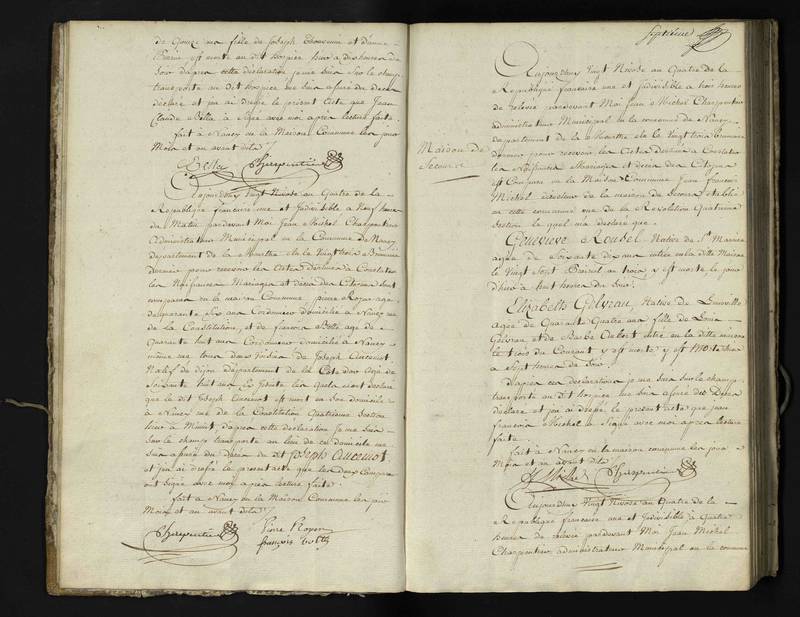 de Gonze ans fille de Joseph Thouvenin et d'anne
Pierre est morte au dit hospice hier a dix heures du
Soir d'après cette déclaration je me suis sur le champ
transporté au dit hospice me suis assuré du decès
déclaré et j'ai dressé le présent acte que Jean
Claude Bella a signé avec moi après lecture faite.
fait à Nancy en la Maison Commune les jour
Mois et an avant dits
Bella Charpentier
Aujourdhuy Vingt Nivose au Quatre de la
République francaise une et indivisible a Neuf heures
du Matin pardevant Moi Jean Michel Charpentier
Administrateur Municipal en la Commune de Nancy
Département de la Meurthe élu le Vingt trois Brumaire
dernier pour recevoir les Actes destinés à Constater
les Naissances Mariages et décès des Citoyens Sont
comparus en la maison Commune pierre Royer agé
de quarante Six ans Cordonnier domicilié à Nancy rue
de la Constitution, et de francois Botté agé de
Quarante huit ans Cordonnier domicilié à Nancy
même rue tous deux Voisins de Joseph Aucenot
Natif de dijon département de la Cote d'or agé de
Soixante huit ans les quels m'ont déclaré
que le dit Joseph Aucenot est mort en Son domicile
à Nancy rue de la Constitution Quatrieme Section
hier à Minuit, d'après cette déclaration je me suis
Sur le champ transporté au lieu de ce domicile me
suis assuré du Decès du dit Joseph Aucenot
et j'ai dressé le présent acte que les deux Comparans
ont Signé avec moi après lecture faite.
fait à Nancy en la Maison Commune les jour
Mois et an avant dits
Charpentier Pierre Royer
françois botté
Septieme
Aujourdhuy Vingt Nivose au Quatre de la
République francaise une et indivisible à trois heures
de relevée pardevant Moi jean Michel Charpentier
administrateur Municipal en la commune de Nancy
département de la Meurthe élu le Vingt trois Brumaire
dernier pour recevoir les Actes destinés à Constater
les Naissances Mariages et décès des Citoyens
est Comparu en la Maison Commune Jean francois
Michel directeur de la maison de Secours établie
en cette commune rue de la Révolution Quatrieme
Section le quel m'a déclaré que
Maison de
Secours
Genevieve Roubel Native de St Maurice
agée de Soixante dix ans entrée en la ditte Maison
le Vingt Sept y est morte le jour
d'hier à huit heures du Soir.
Elizabeth Gelyrau, Native de Lunéville
agée de Quarante Quatre ans fille de Louis
Gelyrau et de Barbe Aubert entrée en la ditte maison
le trois du Courant y est morte hier
à Sept heures du Soir.
D'après ces declarations je me suis sur le champ
transporté au dit hospice me suis assuré des Decès
déclarés et j'ai dressé le présent acte que jean
francois Michel a Signé avec moi apres lecture
faite.
fait à Nancy en la maison commune les jour
Mois et an avant dits
Michel Charpentier
Aujourdhuy Vingt Nivose au Quatre de la
République francaise une et Indivisible à Quatre
heures de relevée pardevant Moi Jean Michel
Charpentier administrateur Municipal en la commune